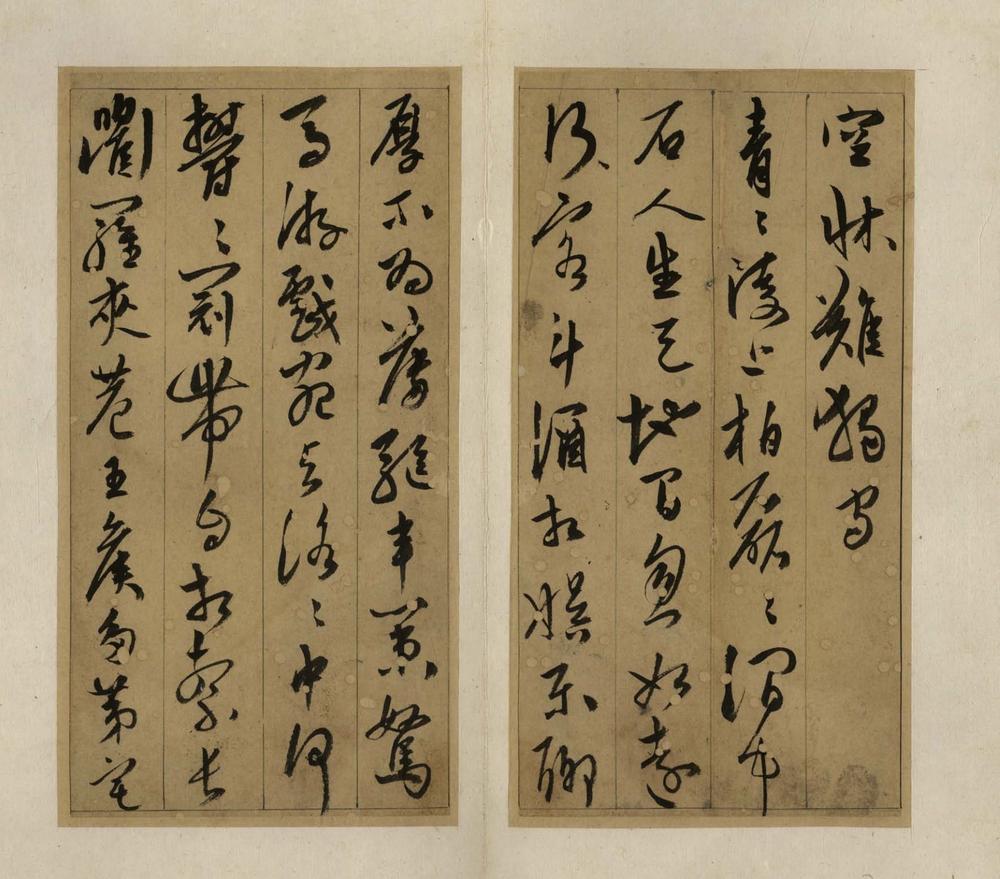 空牀難獨守
青〻陵上柏磊〻澗中
石人生天地間忽如遠
行客斗酒相娛樂聊
厚不為薄驅車策駑
馬游戲宛與洛〻中何
鬱〻冠帶自相索長
衢羅夾巷王侯多第宅